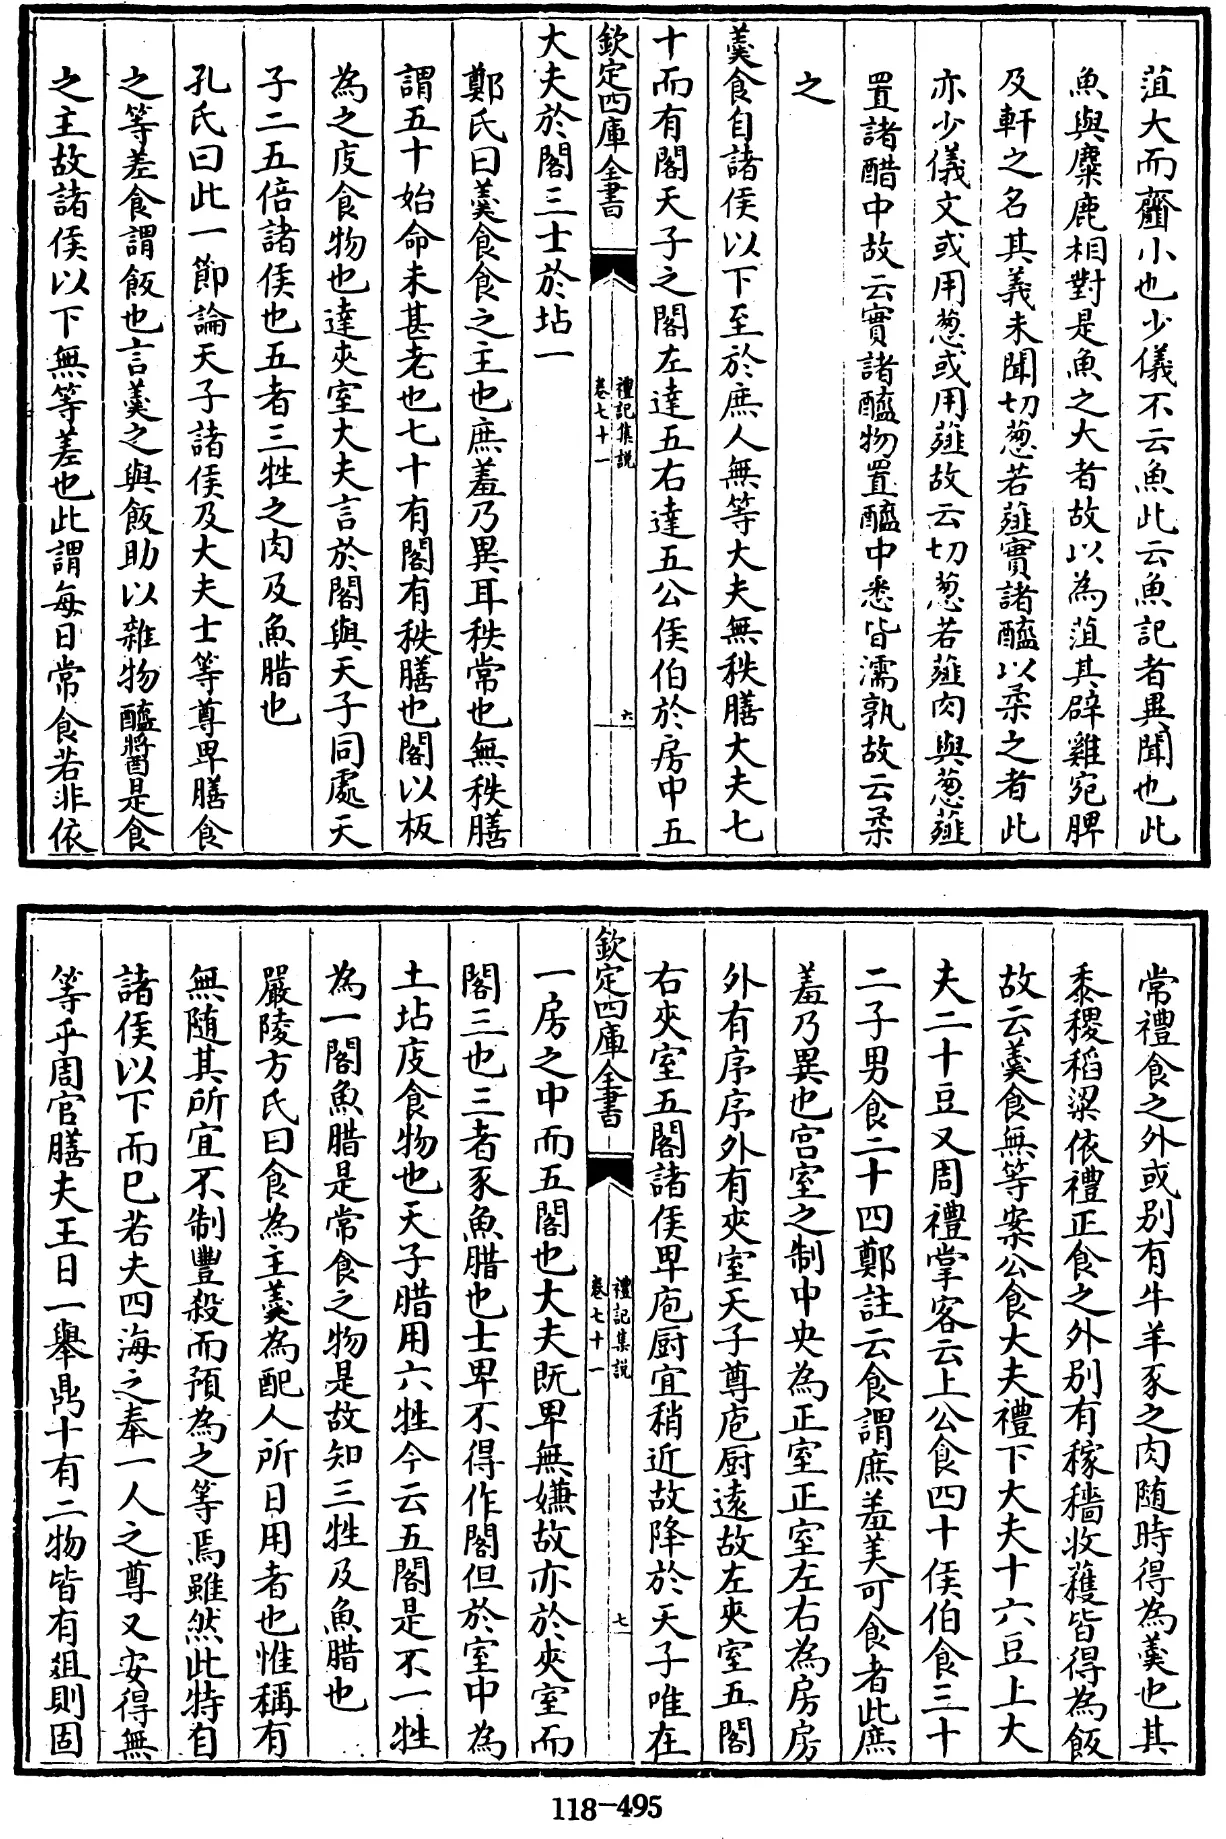 菹大而齏小也少儀不云魚此云魚記者異聞也此
魚與麋鹿相對是魚之大者故以為菹其辟雞宛脾
及軒之名其義未聞切葱若薤實諸醯以柔之者此
亦少儀文或用葱或用薤故云切葱若薤肉與葱薤
置諸醋中故云實諸醯物置醯中悉皆濡孰故云柔
之
羮食自諸侯以下至於庶人無等大夫無秩膳大夫七
十而有閣天子之閣左達五右達五公侯伯於房中五
欽定四庫全書
禮記集説
卷七十一
六
大夫於閣三士於坫一
鄭氏曰羮食食之主也庶羞乃異耳秩常也無秩膳
謂五十始命未甚老也七十有閣有秩膳也閣以板
為之庋食物也達夾室大夫言於閣與天子同處天
子二五倍諸侯也五者三牲之肉及魚腊也
孔氏曰此一節論天子諸侯及大夫士等尊卑膳食
之等差食謂飯也言羮之與飯助以雜物醯醬是食
之主故諸侯以下無等差也此謂每日常食若非依
常禮食之外或别有牛羊豕之肉随時得為羮也其
黍稷稻粱依禮正食之外别有稼穡收穫皆得為飯
故云羮食無等案公食大夫禮下大夫十六豆上大
夫二十豆又周禮掌客云上公食四十侯伯食三十
二子男食二十四鄭註云食謂庶羞美可食者此庶
羞乃異也宫室之制中央為正室正室左右為房房
外有序序外有夾室天子尊庖厨逺故左夾室五閣
右夾室五閣諸侯卑庖厨宜稍近故降於天子唯在
欽定四庫全書
禮記集説
卷七十一
七
一房之中而五閣也大夫既卑無嫌故亦於夾室而
閣三也三者豕魚腊也士卑不得作閣但於室中為
土坫庋食物也天子腊用六牲今云五閣是不一牲
為一閣魚腊是常食之物是故知三牲及魚腊也
嚴陵方氏曰食為主羮為配人所日用者也惟稱有
無随其所宜不制豐殺而預為之等焉雖然此特自
諸侯以下而已若夫四海之奉一人之尊又安得無
等乎周官膳夫王日一舉鼎十有二物皆有俎則固
118-495